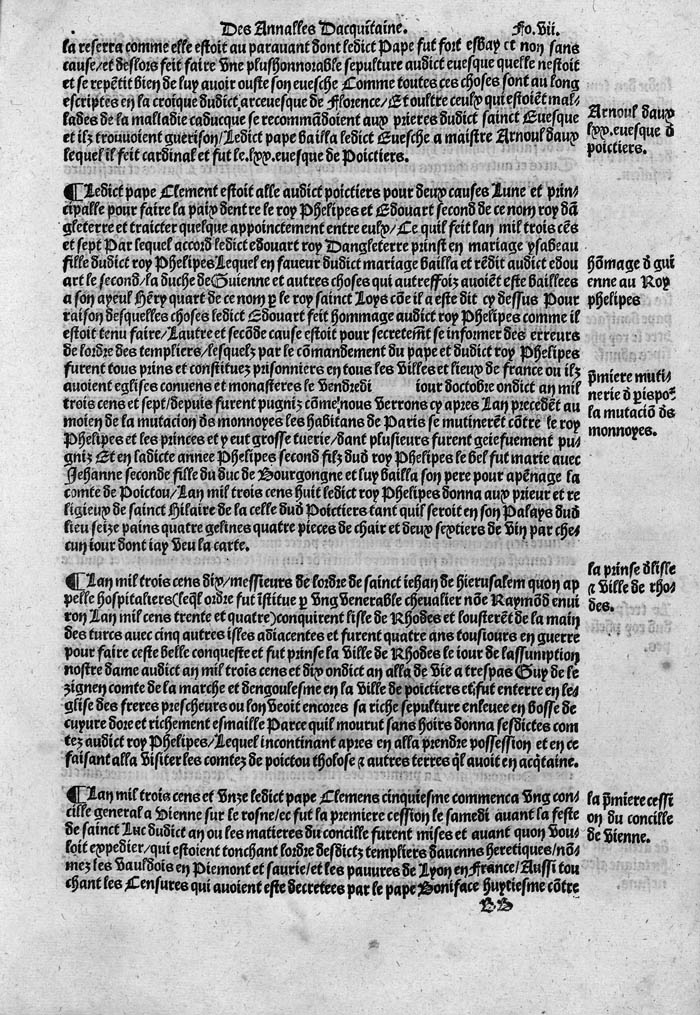 Des Annalles Dacquitaine. Fo. vii.
la reserra comme elle estoit au parauant dont ledict Pape fut fort esbay et non sans
cause/et deslors feit faire vne plushonnorable sepulture audict euesque quelle nestoit
et se repētit bien de luy auoir ouste son euesche Comme toutes ces choses sont au long
escriptes en la croniq̄ue dudict arceuesque de Florence/Et oultre ceulx qui estoiēt mal-
lades de la malladie caducque se recommādoient aux prieres dudict sainct Euesque
et ilz trouuoient guerison/Ledict pape bailla ledict Euesche a maistre Arnoul daux
lequel il feit cardinal et fut le.lxx.euesque de Poictiers.
Arnoul daux
lxx.euesque d̄
poictiers.
¶Ledict pape Clement estoit alle audict poictiers pour deux causes Lune et prin-
cipalle pour faire la paix dentre le roy Phelipes et Edouart second de ce nom roy dā
gleterre et traicter quelque appoinctement entre eulx/Ce quil feit lan mil trois cēs
et sept Par lequel accord ledict edouart roy Dangleterre prinst en mariage ysabeau
fille dudict roy Phelipes Lequel en faueur dudict mariage bailla et rēdit audict edou
art le second/la duche de Guienne et autres choses qui autreffoiz auoiēt este baillees
a son ayeul Hēry quart de ce nom p̱ le roy sainct Loys cōe il a este dit cy dessus Pour
raison desquelles choses ledict Edouart feit hommage audict roy Phelipes comme il
estoit tenu faire/Lautre et secōde cause estoit pour secretemēt se informer des erreurs
de lordre des templiers/lesquelz par le cōmandement du pape et dudict roy Phelipes
furent tous prins et constituez prisonniers en tous les villes et lieux de france ou ilz
auoient eglises conuens et monasteres le vendredi iour doctobre ondict an mil
trois cens et sept/depuis furent pugniz cōme nous verrons cy apres Lan precedēt au
moien de la mutacion dˢ monnoyes les habitans de Paris se mutinerēt cōtre le roy
Phelipes et les princes et y eut grosse tuerie/dant plusieurs furent geiefuement pu-
gniz Et en ladicte annee Phelipes second filz dud roy Phelipes le bel fut marie auec
Jehanne seconde fille du duc de Bourgongne et luy bailla son pere pour apēnage la
comte de Poictou/Lan mil trois cens huit ledict roy Phelipes donna aux prieur et re
ligieux de sainct Hilaire de la celle dud Poictiers tant quil seroit en son Palays dud
lieu seize pains quatre gelines quatre pieces de chair et deux sextiers de vin par che-
cun iour dont iay veu la carte.
hōmage d̄ gui
enne au Roy
phelipes
p̄miere muti-
nerie d̄ p̱ispoꝰ
la mutaciō dˢ
monnoyes.
¶Lan mil trois cens dix/messieurs de lordre de sainct iehan de hierusalem quon ap
pelle hospitaliers(leq̄l ordre fut īstitue p̱ vng venerable cheualier nōe Raymōd enui
ron Lan mil cens trente et quatre)conquirent lisle de Rhodes et lousterēt de la main
des turcs auec cinq autres isles adiacentes et furent quatre ans tousiours en guerre
pour faire ceste belle conqueste et fut prinse la ville de Rhodes le iour de lassumption
nostre dame audict an mil trois cens et dix ondict an alla de vie a trespas Guy de le
zignen comte de la marche et dengoulesme en la ville de poictiers et fut enterre en le-
glise des freres prescheurs ou lon veoit encores sa riche sepulture enleuee en bosse de
cuyure dore et richement esmaille Parce quil mourut sans hoirs donna sesdictes com
tez audict roy Phelipes/Lequel incontinant apres en alla prendre possession et en ce
faisant alla visiter les comtez de poictou tholose ⁊ autres terres q̄l auoit en acq̄taine.
la prinse dlisle
⁊ ville de rho-
des.
¶Lan mil trois cens et vnze ledict pape Clemens cinquiesme commenca vng con-
cille general a Vienne sur le rosne/ec fut la premiere cession le samedi auant la feste
de sainct Luc dudict an ou les matieres du concille furent mises et auant quon vou-
loit expedier/qui estoient tonchant lordre desdictz templiers daucnns heretiques/nō-
mez les Vauldois en Piemont et saurie/et les pauures de Lyon en France/Aussi tou
chant les Censures qui auoient este decretees par le pape Boniface huytiesme cōtre
la p̄miere cessi
on du concille
de vienne.
BB